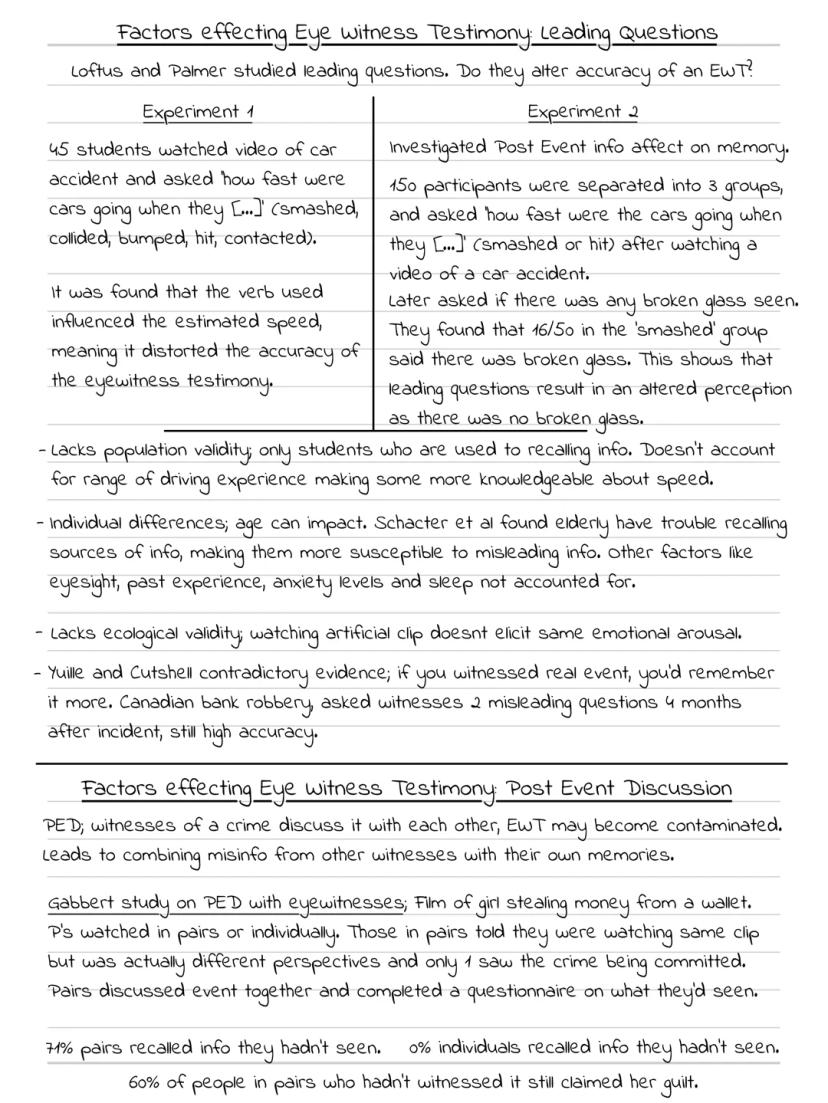 Factors effecting Eye Witness Testimony: Leading Questions
Loftus and Palmer studied leading questions. Do they alter accuracy of an EWT?
Experiment 1
45 students watched video of car
accident and asked 'how fast were
cars going when they [...]' (smashed,
collided, bumped, hit, contacted).
It was found that the verb used
influenced the estimated speed,
meaning it distorted the accuracy of
the eyewitness testimony.
Experiment 2
Investigated Post Event info affect on memory.
150 participants were separated into 3 groups,
and asked 'how fast were the cars going when
they [...]' (smashed or hit) after watching a
video of a car accident.
Later asked if there was any broken glass seen.
They found that 16/50 in the 'smashed' group
said there was broken glass. This shows that
leading questions result in an altered perception
as there was no broken glass.
- Lacks population validity; only students who are used to recalling info. Doesn't account
for range of driving experience making some more knowledgeable about speed.
- Individual differences; age can impact. Schacter et al found elderly have trouble recalling
sources of info, making them more susceptible to misleading info. Other factors like
eyesight, past experience, anxiety levels and sleep not accounted for.
- Lacks ecological validity; watching artificial clip doesnt elicit same emotional arousal.
- Yuille and Cutshell contradictory evidence; if you witnessed real event, you'd remember
it more. Canadian bank robbery, asked witnesses 2 misleading questions 4 months
after incident, still high accuracy.
Factors effecting Eye Witness Testimony: Post Event Discussion
PED; witnesses of a crime discuss it with each other, EWT may become contaminated.
Leads to combining misinfo from other witnesses with their own memories.
Gabbert study on PED with eyewitnesses; Film of girl stealing money from a wallet.
P's watched in pairs or individually. Those in pairs told they were watching same clip
but was actually different perspectives and only 1 saw the crime being committed.
Pairs discussed event together and completed a questionnaire on what they'd seen.
71% pairs recalled info they hadn't seen. 0% individuals recalled info they hadn't seen.
60% of people in pairs who hadn't witnessed it still claimed her guilt.